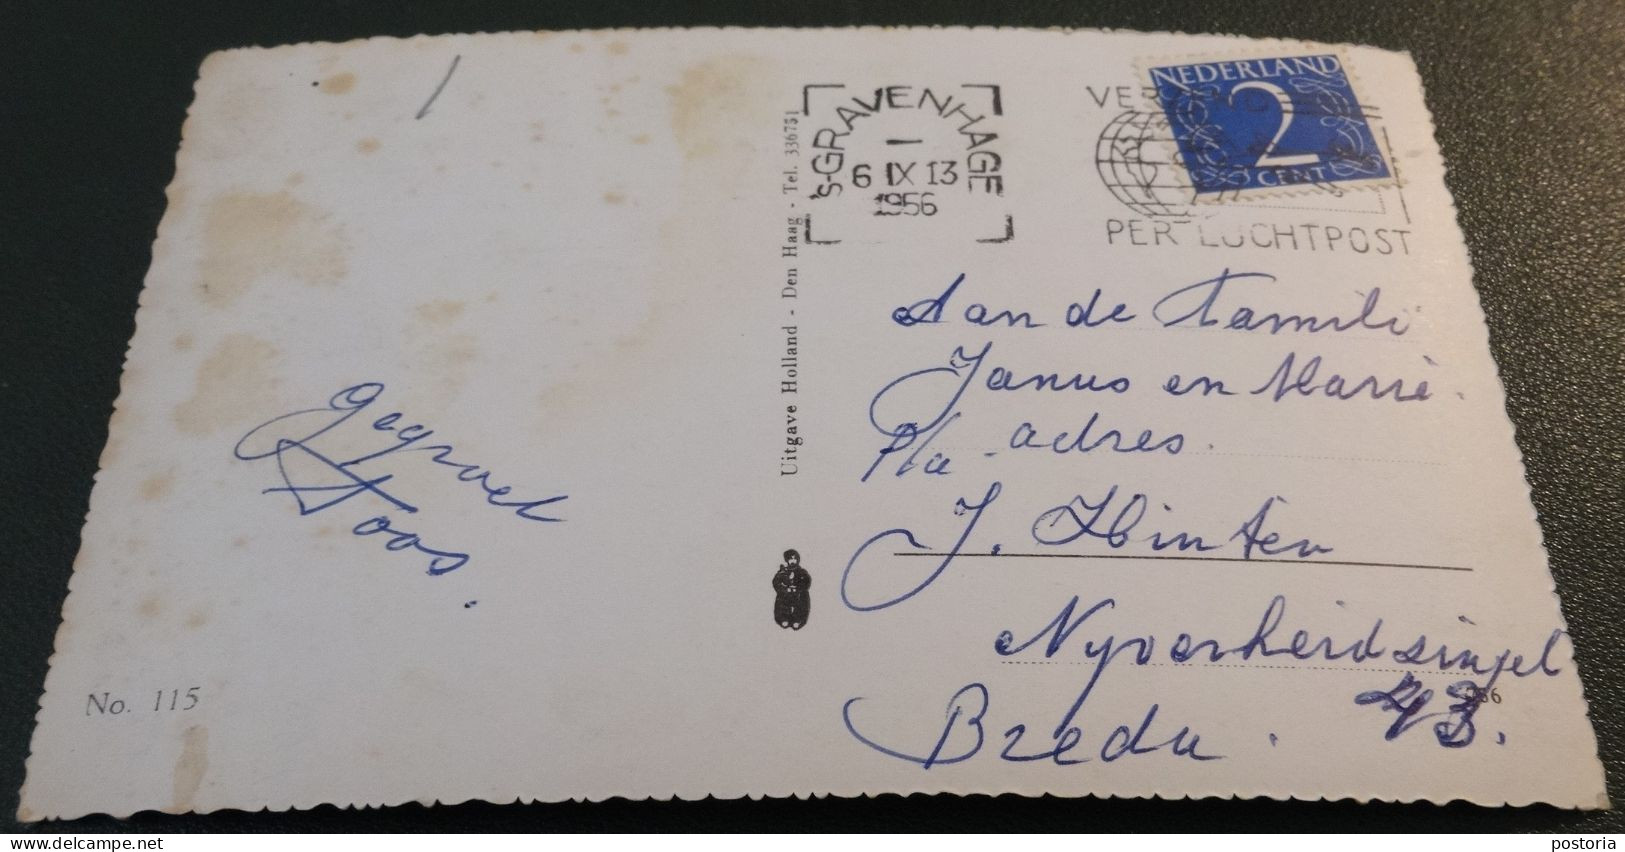 's-GRAVENHAGE
6 IX 13
1956
VER
PER LUCHTPOST
NEDERLAND
2
CENT
Uitgave Holland - Den Haag - Tel. 336751
Aan de Famili
Janus en Marie.
P/a - adres.
J. Hinten
Nyverheidsingel
Breda. 43.
Gegroet
Toos.
No. 115
postoria